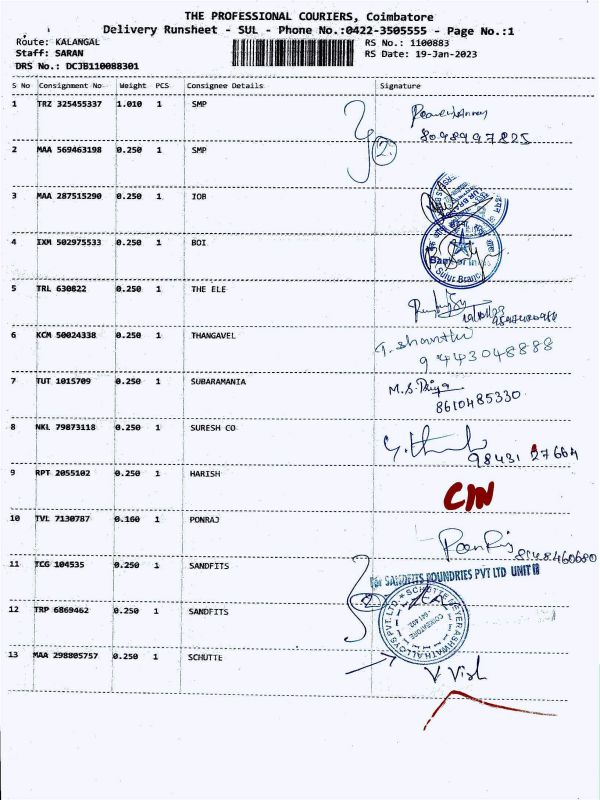 THE PROFESSIONAL COURIERS, Coimbatore
Delivery Runsheet - SUL - Phone No.:0422-3505555 - Page No.:1
Route: KALANGAL RS No.: 1100883
Staff: SARAN RS Date: 19-Jan-2023
DRS No.: DCJB110088301
S No Consignment No Weight PCS Consignee Details Signature
1 TRZ 325455337 1.010 1 SMP
8098997825
2 MAA 569463198 0.250 1 SMP 2
3 MAA 287515290 0.250 1 IOB
4 IXM 502975533 0.250 1 BOI
Bank of India
Sulur Branch
5 TRL 630822 0.250 1 THE ELE
6 KCM 50024338 0.250 1 THANGAVEL T. Shanthi
9443048888
7 TUT 1015709 0.250 1 SUBARAMANIA M.S. Priya
8610485330
8 NKL 79873118 0.250 1 SURESH CO
98431 27664
9 RPT 2055102 0.250 1 HARISH CIN
10 TVL 7130787 0.160 1 PONRAJ
8148460680
11 TCG 104535 0.250 1 SANDFITS
for SANDFITS FOUNDRIES PVT LTD UNIT II
12 TRP 6869462 0.250 1 SANDFITS 2
COIMBATORE
641 402
13 MAA 298805757 0.250 1 SCHUTTE
V. Vish